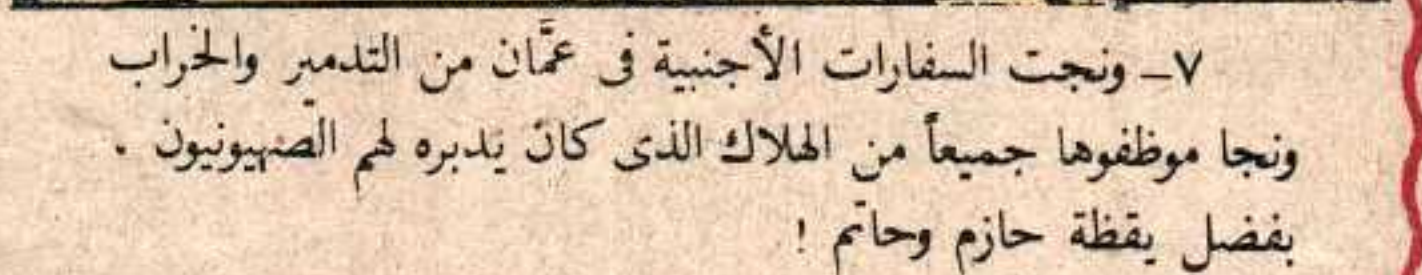 ٧ــ ونجت السفارات الأجنبية فى عمَّان من التدمير والخراب
ونجا موظفوها جميعاً من الهلاك الذى كان يَدبره لهم الصّهيونيون .
بفضل يقظة حازم وحاتم !